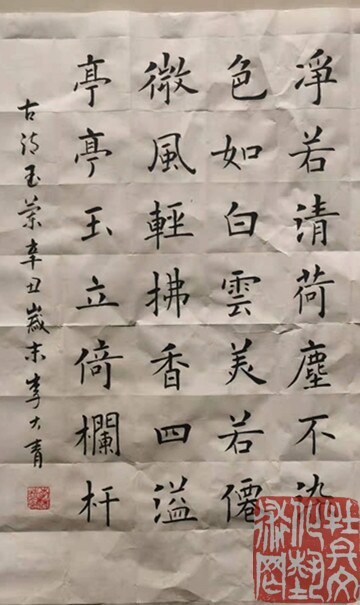 凈若清荷塵不染
色如白雲美若僊
微風輕拂香四溢
亭亭玉立倚欄杆
古詩玉蘭辛丑歲末李大青